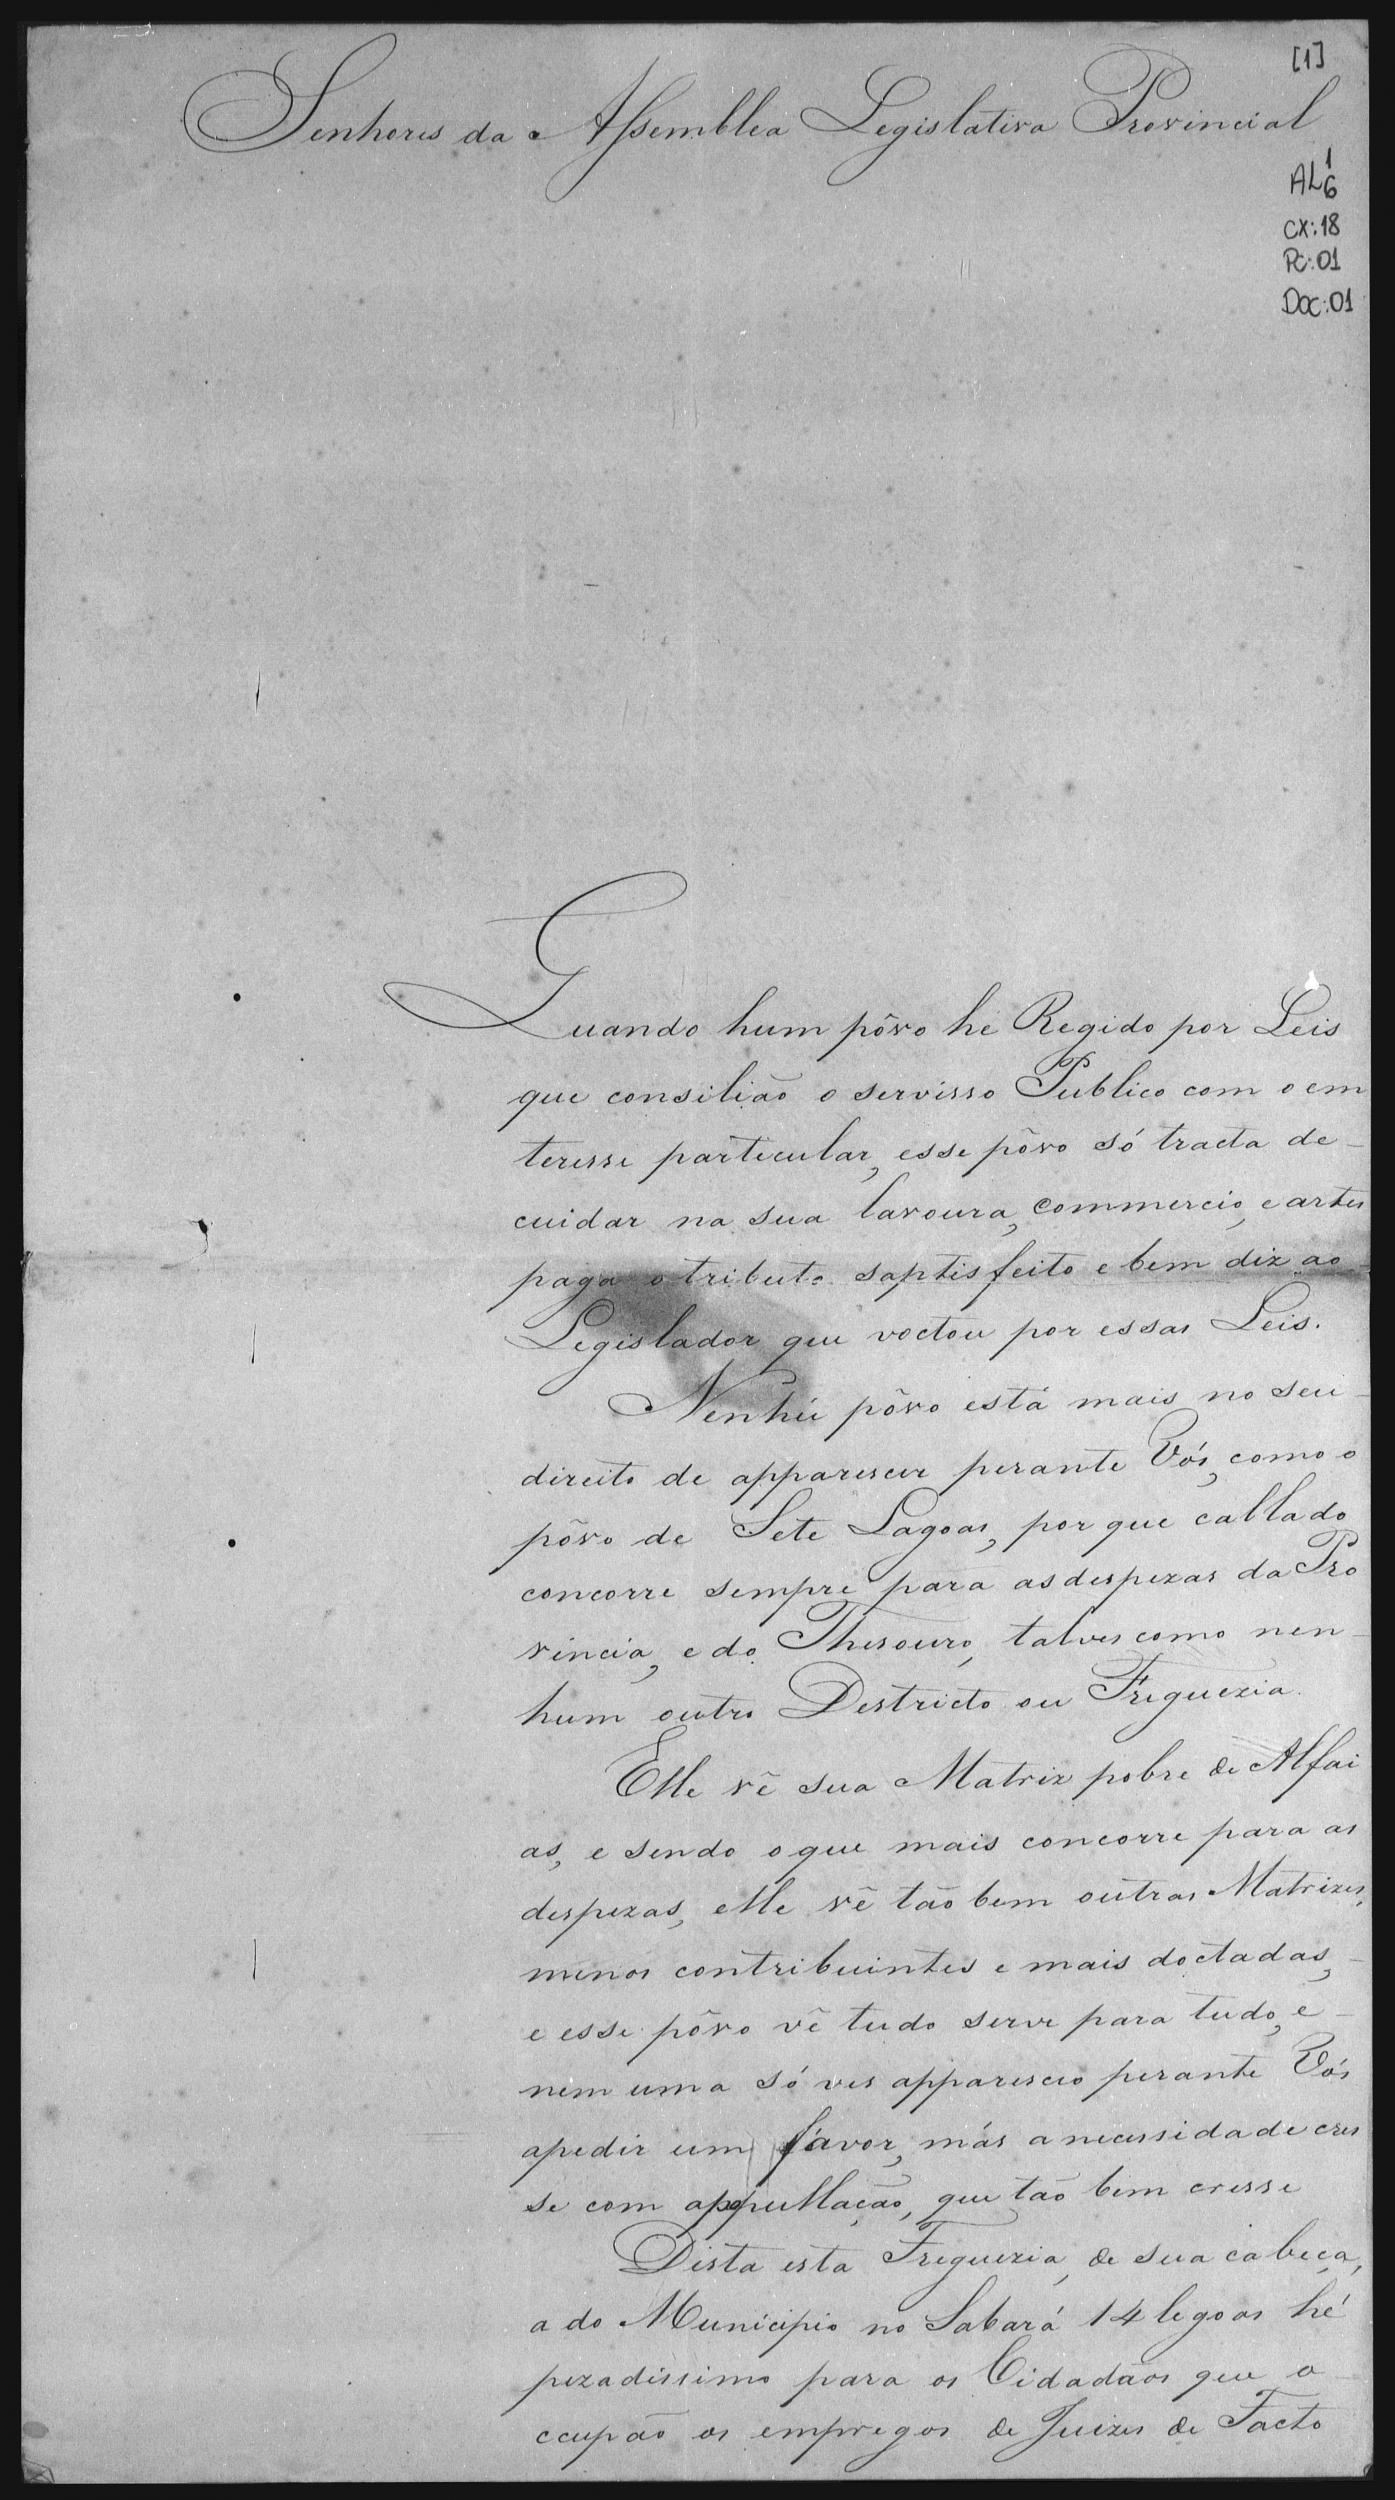 [1]
Senhores da Assemblea Legislativa Provincial
AL 1/6
CX:18
PC:01
DOC:01
Quando hum pôvo he Regido por Leis
que consilião o servisso Publico com o em
teresse particular, esse pôvo só tracta de
cuidar na sua lavoura, commercio, e artes
paga o tributo saptisfeito e bem diz ao
Legislador que voctou por essas Leis.
Nenhũ pôvo está mais no seu
direito de apparescer perante Vós, como o
pôvo de Sete Lagoas, por que callado
concorre sempre para as despezas da Pro
vincia, e do Thesouro, talves como nen
hum outro Destricto ou Freguezia.
Elle vê sua Matriz pobre de Alfai
as, e sendo o que mais concorre para as
despezas, elle vê tão bem outras Matrizes,
menos contribuintes e mais doctadas,
e esse pôvo vê tudo serve para tudo, e
nem uma só ves apparesceo perante Vós
apedir um favor, más a necessidade cres
se com appullação, que tão bem cresse
Dista esta Freguezia, de sua cabeça,
a do Municipio no Sabará 14 legoas hé
pezadissimo para os Cidadãos que o
ccupão os empregos de Juizes de Facto